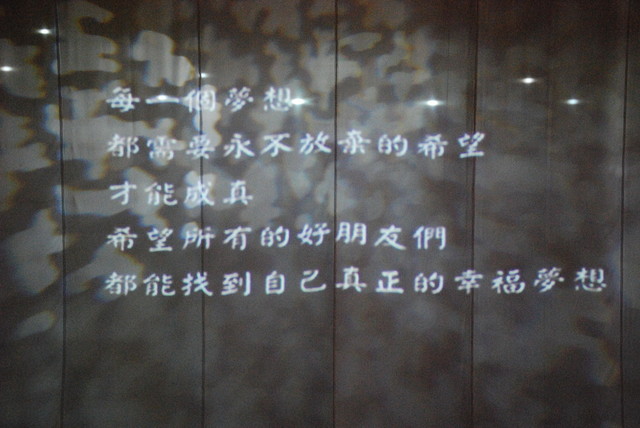 每一個夢想
都需要永不放棄的希望
才能成真
希望所有的好朋友們
都能找到自己真正的幸福夢想